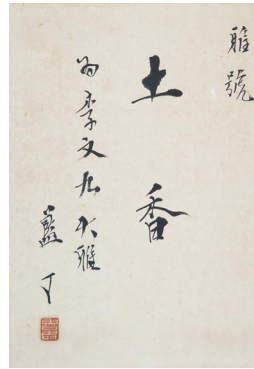 雅號
土香
為李文九大雅
藍丁